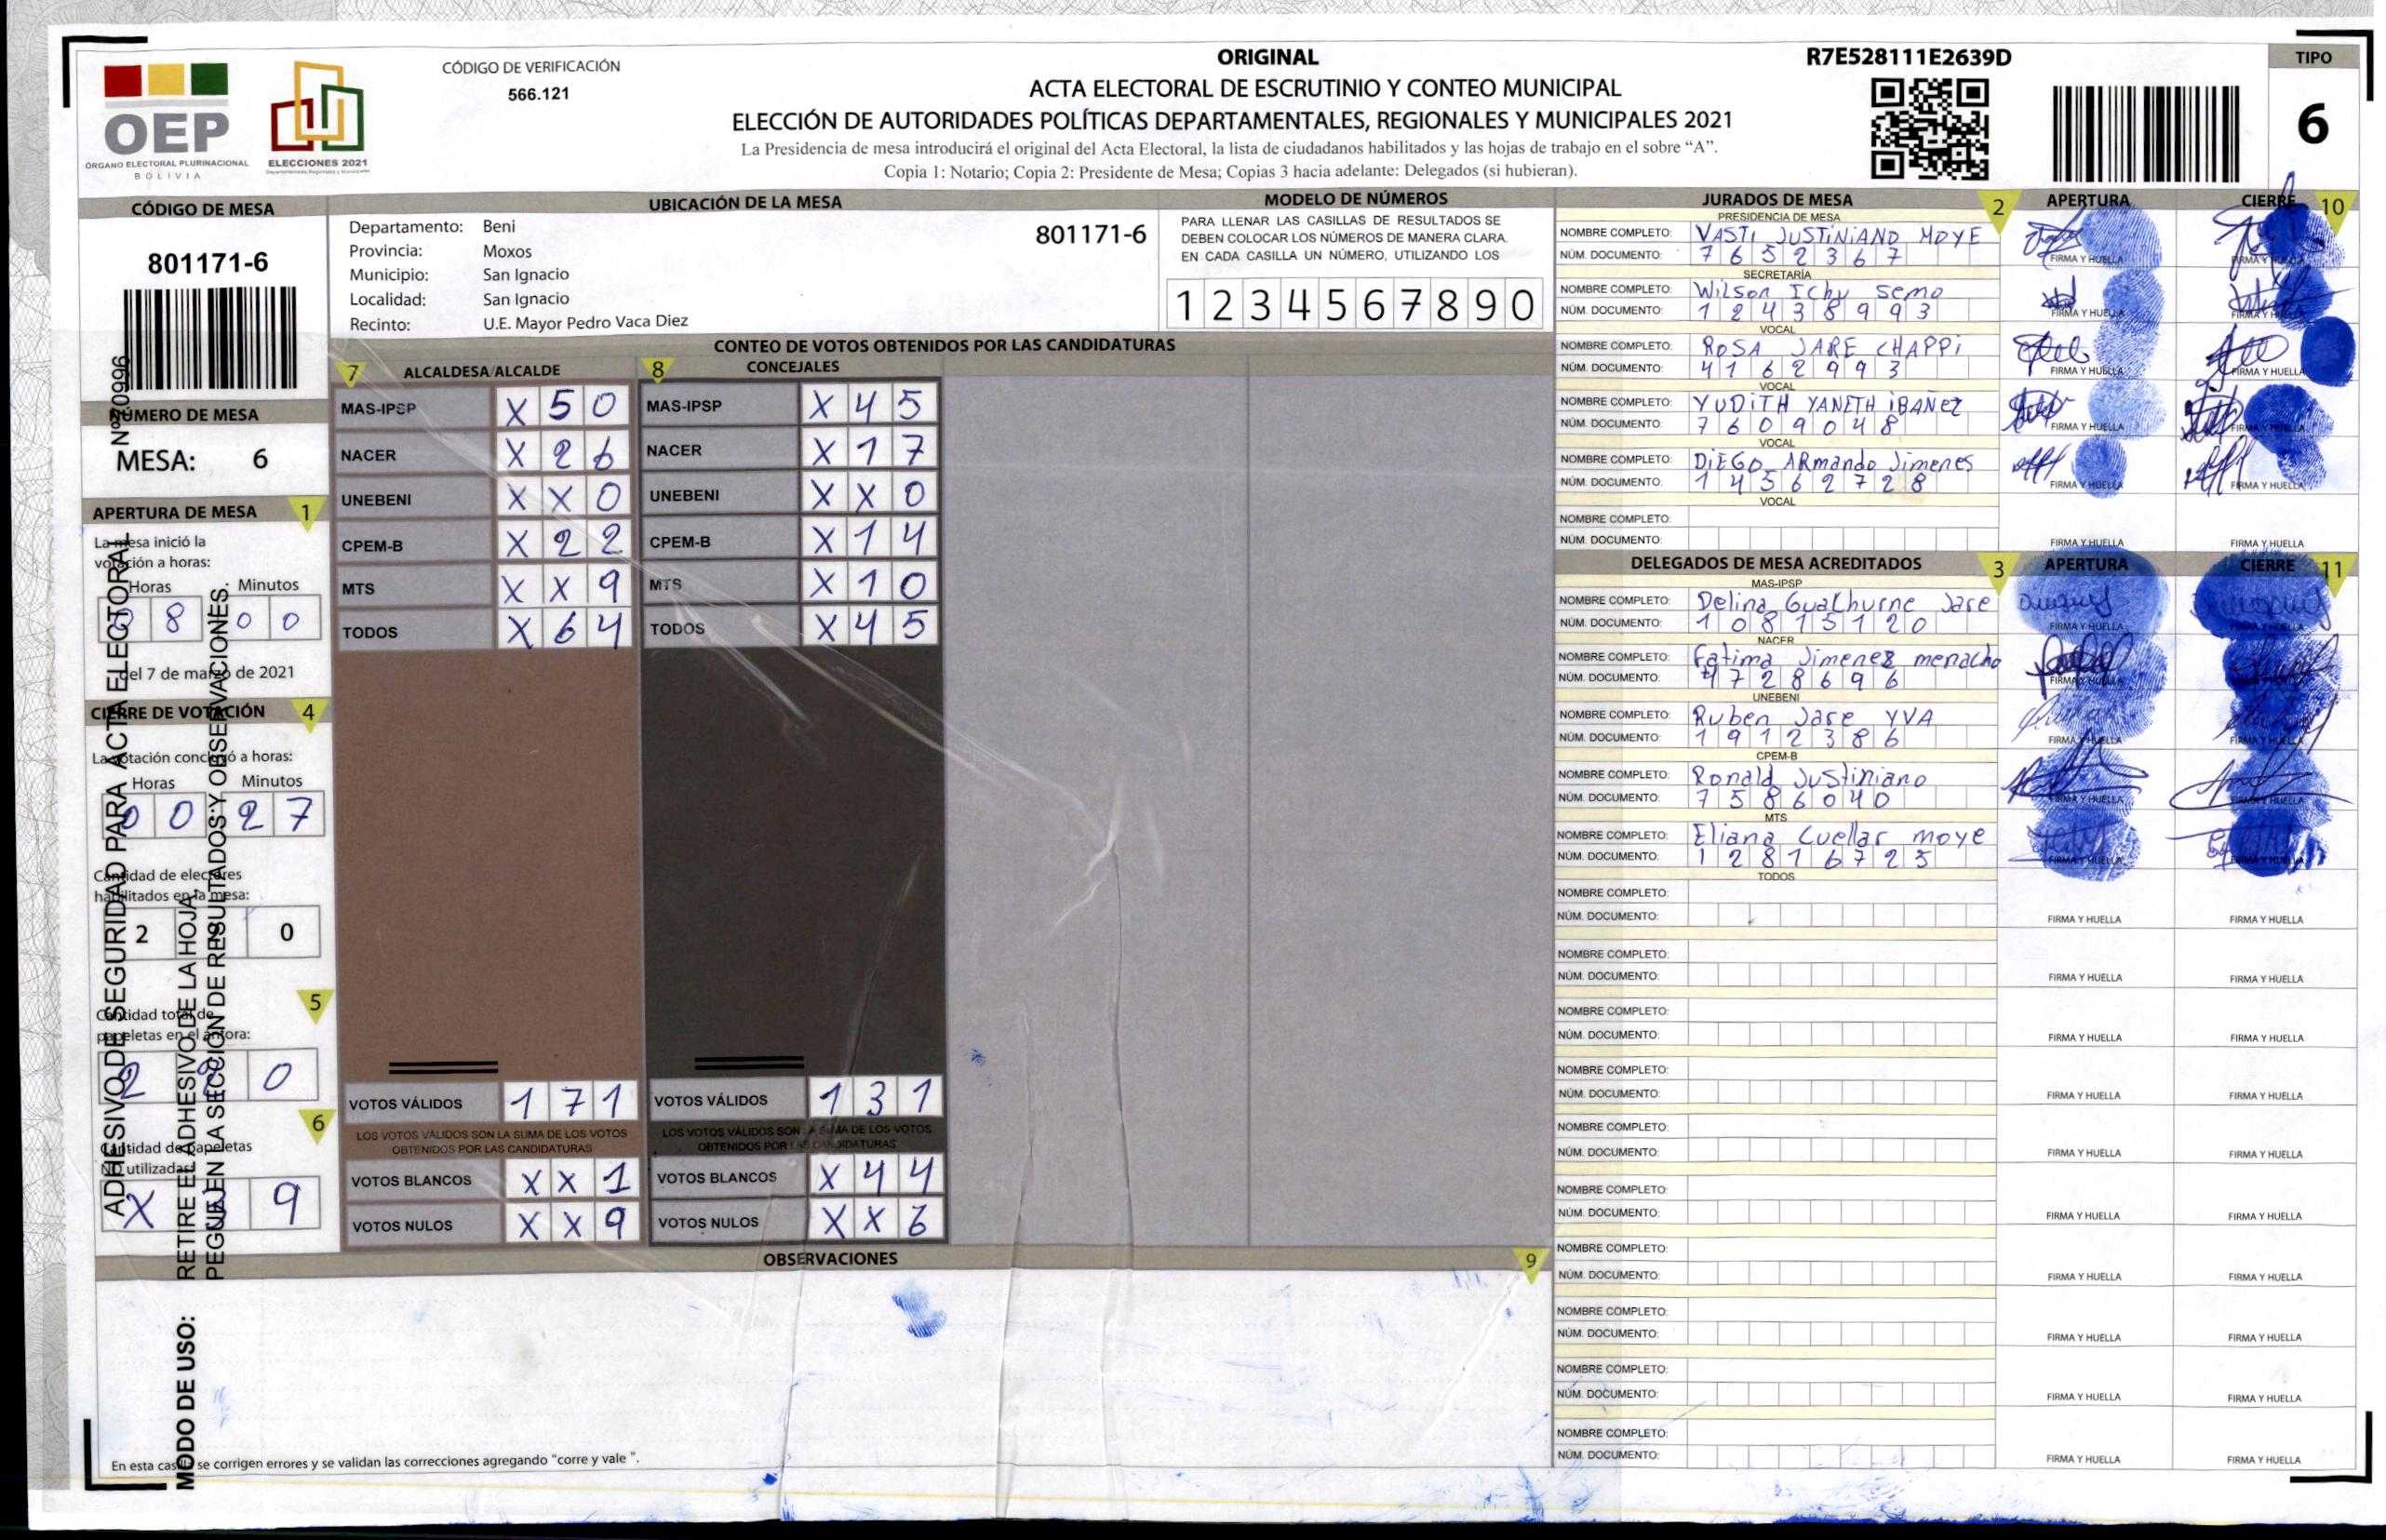 ORIGINAL
R7E528111E2639D
TIPO
6
OEP
ÓRGANO ELECTORAL PLURINACIONAL
BOLIVIA
ELECCIONES 2021
CÓDIGO DE VERIFICACIÓN
566.121
ACTA ELECTORAL DE ESCRUTINIO Y CONTEO MUNICIPAL
ELECCIÓN DE AUTORIDADES POLÍTICAS DEPARTAMENTALES, REGIONALES Y MUNICIPALES 2021
La Presidencia de mesa introducirá el original del Acta Electoral, la lista de ciudadanos habilitados y las hojas de trabajo en el sobre “A”.
Copia 1: Notario; Copia 2: Presidente de Mesa; Copias 3 hacia adelante: Delegados (si hubieran).
CÓDIGO DE MESA
801171-6
NÚMERO DE MESA
MESA: 6
APERTURA DE MESA 1
La mesa inició la
votación a horas:
Horas Minutos
0 8 0 0
del 7 de marzo de 2021
CIERRE DE VOTACIÓN 4
La votación concluyó a horas:
Horas Minutos
0 0 2 7
Cantidad de electores
habilitados en la mesa:
2 0
5
Cantidad total de
papeletas en el ánfora:
2 0
6
Cantidad de papeletas
NO utilizadas:
X 9
Nº 20996
ADHESIVO DE SEGURIDAD PARA ACTA ELECTORAL
MODO DE USO: RETIRE EL ADHESIVO DE LA HOJA,
PEGUE EN LA SECCIÓN DE RESULTADOS Y OBSERVACIONES.
UBICACIÓN DE LA MESA
Departamento: Beni
Provincia: Moxos
Municipio: San Ignacio
Localidad: San Ignacio
Recinto: U.E. Mayor Pedro Vaca Diez
801171-6
MODELO DE NÚMEROS
PARA LLENAR LAS CASILLAS DE RESULTADOS SE
DEBEN COLOCAR LOS NÚMEROS DE MANERA CLARA.
EN CADA CASILLA UN NÚMERO, UTILIZANDO LOS
1 2 3 4 5 6 7 8 9 0
CONTEO DE VOTOS OBTENIDOS POR LAS CANDIDATURAS
7 ALCALDESA/ALCALDE
MAS-IPSP X 5 0
NACER X 2 6
UNEBENI X X 0
CPEM-B X 2 2
MTS X X 9
TODOS X 6 4
VOTOS VÁLIDOS 1 7 1
LOS VOTOS VÁLIDOS SON LA SUMA DE LOS VOTOS
OBTENIDOS POR LAS CANDIDATURAS
VOTOS BLANCOS X X 1
VOTOS NULOS X X 9
8 CONCEJALES
MAS-IPSP X 4 5
NACER X 1 7
UNEBENI X X 0
CPEM-B X 1 4
MTS X 1 0
TODOS X 4 5
VOTOS VÁLIDOS 1 3 1
LOS VOTOS VÁLIDOS SON LA SUMA DE LOS VOTOS
OBTENIDOS POR LAS CANDIDATURAS
VOTOS BLANCOS X 4 4
VOTOS NULOS X X 6
OBSERVACIONES 9
En esta casilla se corrigen errores y se validan las correcciones agregando "corre y vale ".
JURADOS DE MESA 2 APERTURA CIERRE 10
PRESIDENCIA DE MESA
NOMBRE COMPLETO: VASTI JUSTINIANO MOYE
NÚM. DOCUMENTO: 7652367 FIRMA Y HUELLA FIRMA Y HUELLA
SECRETARÍA
NOMBRE COMPLETO: Wilson Ichu Semo
NÚM. DOCUMENTO: 12438993 FIRMA Y HUELLA FIRMA Y HUELLA
VOCAL
NOMBRE COMPLETO: ROSA JARE CHAPPi
NÚM. DOCUMENTO: 4162993 FIRMA Y HUELLA FIRMA Y HUELLA
VOCAL
NOMBRE COMPLETO: YUDITH YANETH IBAÑEZ
NÚM. DOCUMENTO: 7609048 FIRMA Y HUELLA FIRMA Y HUELLA
VOCAL
NOMBRE COMPLETO: DIEGO ARmando Jimenes
NÚM. DOCUMENTO: 14562728 FIRMA Y HUELLA FIRMA Y HUELLA
VOCAL
NOMBRE COMPLETO:
NÚM. DOCUMENTO: FIRMA Y HUELLA FIRMA Y HUELLA
DELEGADOS DE MESA ACREDITADOS 3 APERTURA CIERRE 11
MAS-IPSP
NOMBRE COMPLETO: Delina Jare
NÚM. DOCUMENTO: 10815120 FIRMA Y HUELLA FIRMA Y HUELLA
NACER
NOMBRE COMPLETO: Fatima Jimenez menacho
NÚM. DOCUMENTO: 1728696 FIRMA Y HUELLA FIRMA Y HUELLA
UNEBENI
NOMBRE COMPLETO: Ruben Jare YVA
NÚM. DOCUMENTO: 1912386 FIRMA Y HUELLA FIRMA Y HUELLA
CPEM-B
NOMBRE COMPLETO: Ronald Justiniano
NÚM. DOCUMENTO: 7586040 FIRMA Y HUELLA FIRMA Y HUELLA
MTS
NOMBRE COMPLETO: Eliana Cuellar moye
NÚM. DOCUMENTO: 12816725 FIRMA Y HUELLA FIRMA Y HUELLA
TODOS
NOMBRE COMPLETO:
NÚM. DOCUMENTO: FIRMA Y HUELLA FIRMA Y HUELLA
NOMBRE COMPLETO:
NÚM. DOCUMENTO: FIRMA Y HUELLA FIRMA Y HUELLA
NOMBRE COMPLETO:
NÚM. DOCUMENTO: FIRMA Y HUELLA FIRMA Y HUELLA
NOMBRE COMPLETO:
NÚM. DOCUMENTO: FIRMA Y HUELLA FIRMA Y HUELLA
NOMBRE COMPLETO:
NÚM. DOCUMENTO: FIRMA Y HUELLA FIRMA Y HUELLA
NOMBRE COMPLETO:
NÚM. DOCUMENTO: FIRMA Y HUELLA FIRMA Y HUELLA
NOMBRE COMPLETO:
NÚM. DOCUMENTO: FIRMA Y HUELLA FIRMA Y HUELLA
NOMBRE COMPLETO:
NÚM. DOCUMENTO: FIRMA Y HUELLA FIRMA Y HUELLA
NOMBRE COMPLETO:
NÚM. DOCUMENTO: FIRMA Y HUELLA FIRMA Y HUELLA
NOMBRE COMPLETO:
NÚM. DOCUMENTO: FIRMA Y HUELLA FIRMA Y HUELLA